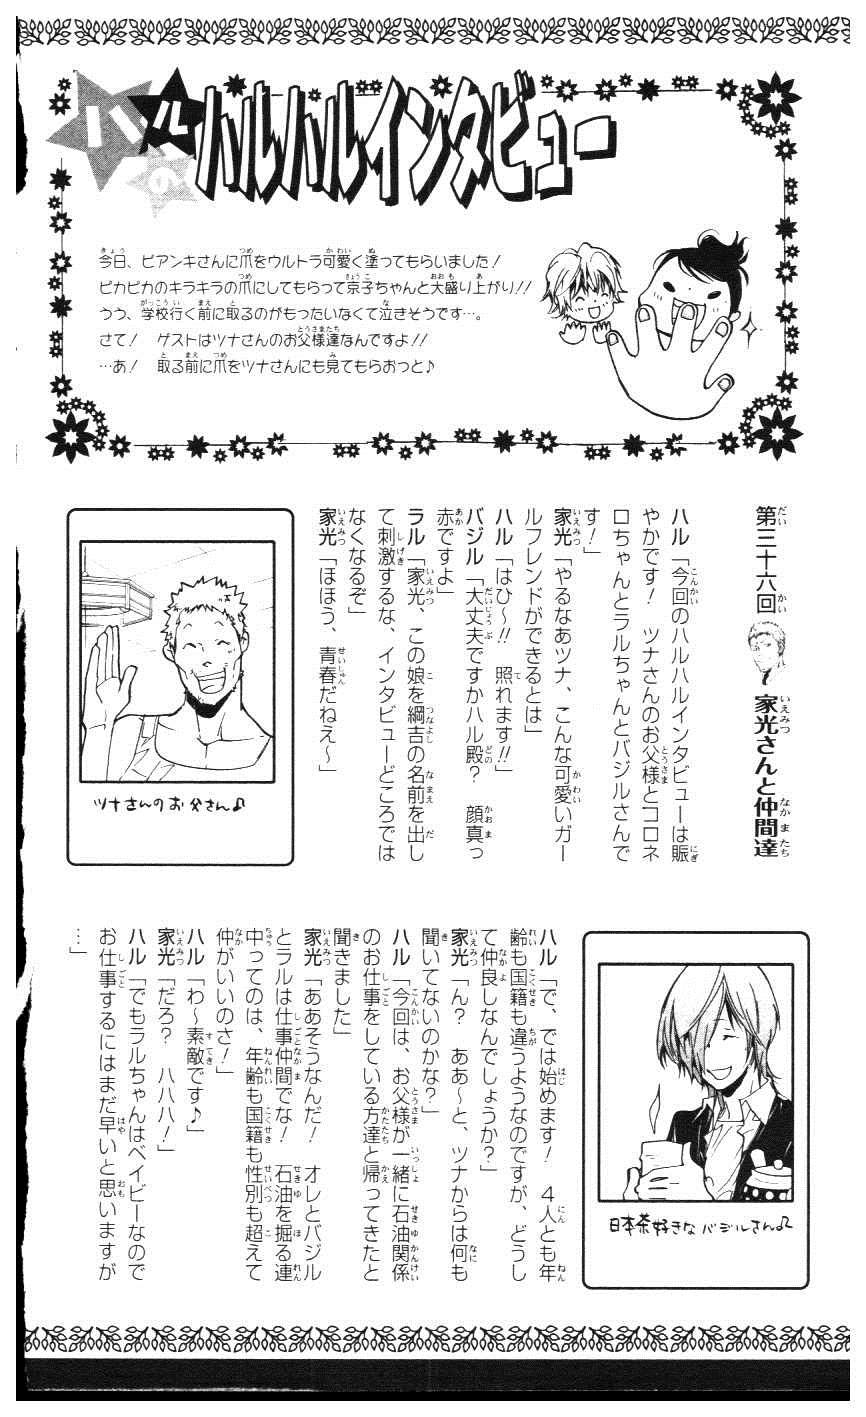 ハルのハルハルインタビュー
今日、ビアンキさんに爪をウルトラ可愛く塗ってもらいました!
ピカピカのキラキラの爪にしてもらって京子ちゃんと大盛り上がり!!
うう、学校行く前に取るのがもったいなくて泣きそうです…。
さて! ゲストはツナさんのお父様達なんですよ!!
…あ! 取る前に爪をツナさんにも見てもらおっと♪
第三十六回 家光さんと仲間達
ハル「今回のハルハルインタビューは賑
やかです! ツナさんのお父様とコロネ
ロちゃんとラルちゃんとバジルさんで
す!」
家光「やるなあツナ、こんな可愛いガー
ルフレンドができるとは」
ハル「はひ〜!! 照れます!!」
バジル「大丈夫ですかハル殿? 顔真っ
赤ですよ」
ラル「家光、この娘を綱吉の名前を出し
て刺激するな、インタビューどころでは
なくなるぞ」
家光「ほほう、青春だねえ〜」
ツナさんのお父さん♪
日本茶好きなバジルさん♪
ハル「で、では始めます! 4人とも年
齢も国籍も違うようなのですが、どうし
て仲良しなんでしょうか?」
家光「ん? ああ〜と、ツナからは何も
聞いてないのかな?」
ハル「今回は、お父様が一緒に石油関係
のお仕事をしている方達と帰ってきたと
聞きました」
家光「ああそうなんだ! オレとバジル
とラルは仕事仲間でな! 石油を掘る連
中ってのは、年齢も国籍も性別も超えて
仲がいいのさ!」
ハル「わ〜素敵です♪」
家光「だろ? ハハハ!」
ハル「でもラルちゃんはベイビーなので
お仕事するにはまだ早いと思いますが
…」